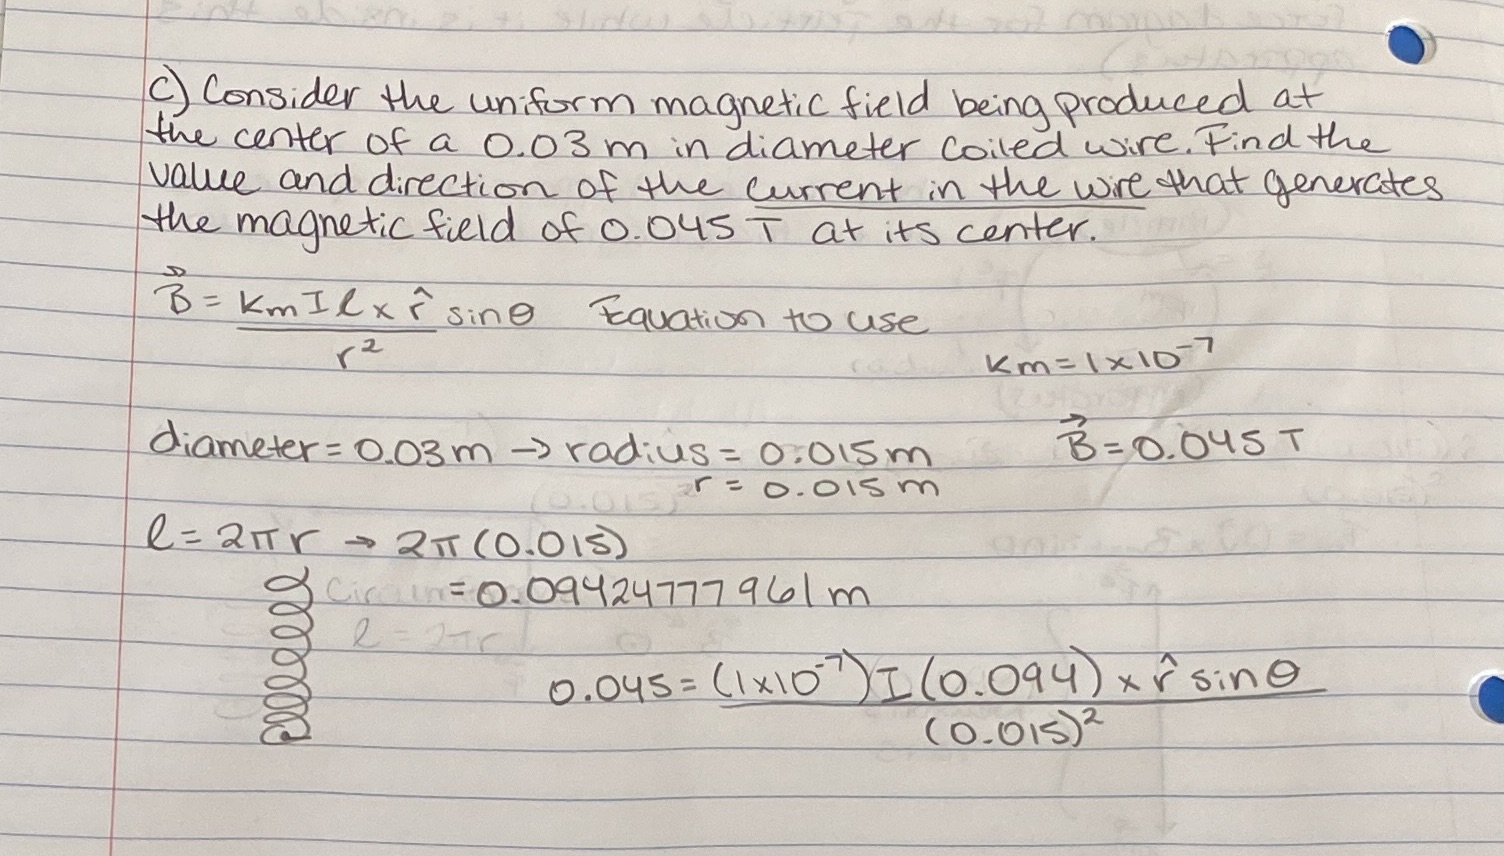 c) Consider the uniform magnetic field being produced at
the center of a 0.03 m in diameter coiled wire. Find the
value and direction of the current in the wire that generates
the magnetic field of 0.045 T at its center.
B⃗ = km I ℓ × r̂ sinθ / r² Equation to use
km = 1×10⁻⁷
diameter = 0.03 m → radius = 0.015 m B⃗ = 0.045 T
r = 0.015 m
ℓ = 2πr → 2π (0.015)
= 0.09424777961 m
ℓ = 2πr
0.045 = (1×10⁻⁷) I (0.094) × r̂ sinθ / (0.015)²